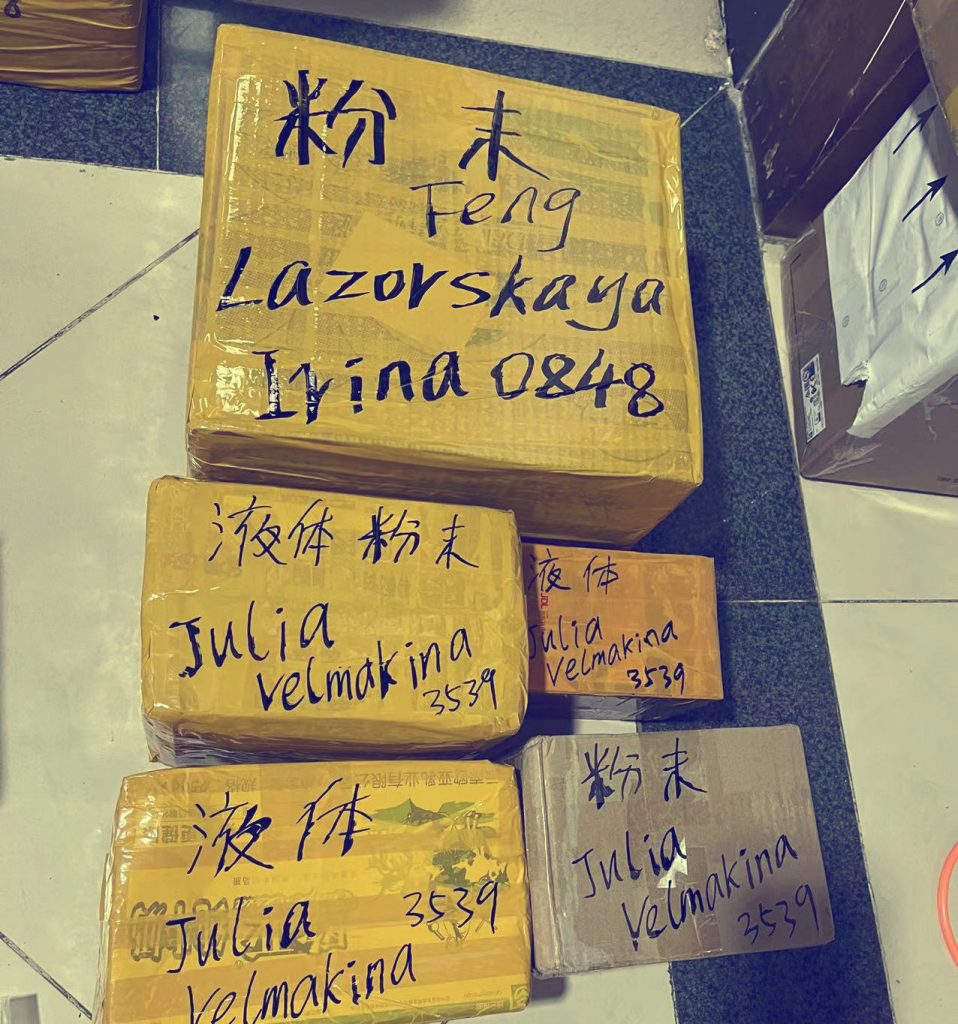 粉末
Feng
Lazorskaya
Irina 0848
液体 粉末
Julia
Velmakina
3539
液体
Julia
Velmakina
3539
液体
Julia 3539
Velmakina
粉末
Julia
Velmakina
3539